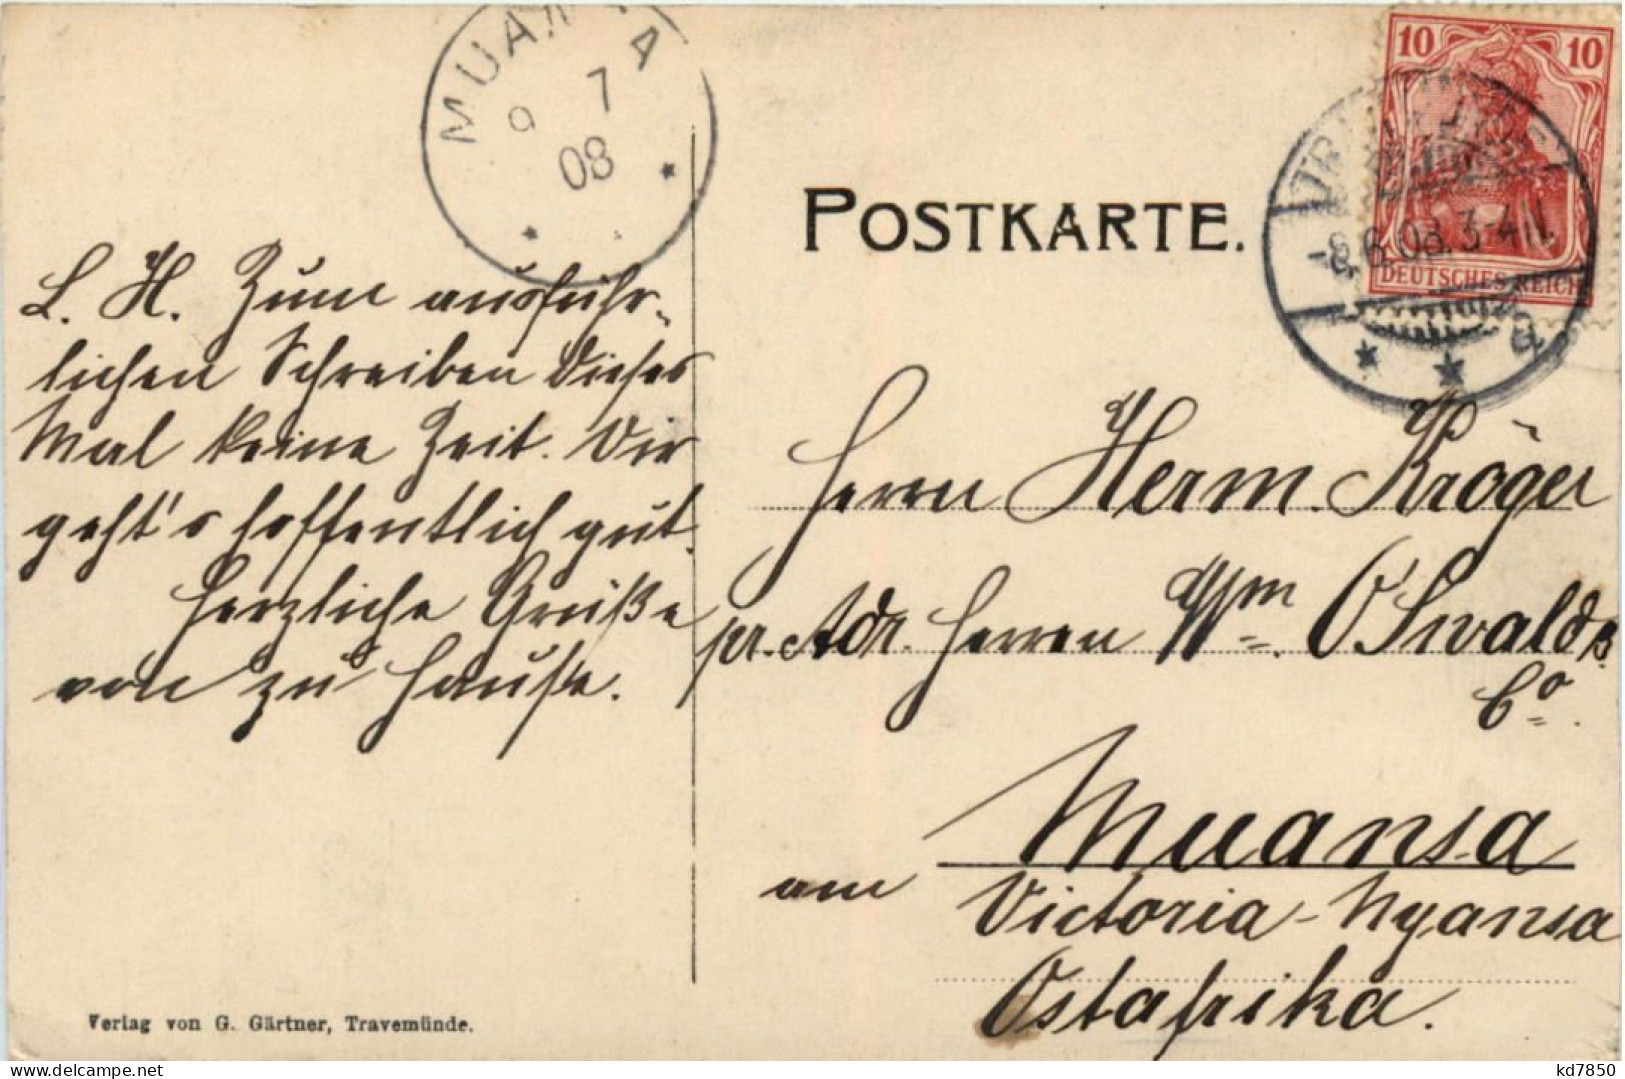 MUANZA
9 7
08
POSTKARTE.
10 10
DEUTSCHES REICH
-8.6.08.3-4N.
a
L. H. Zum ausführ-
lichen Schreiben dieses
Mal keine Zeit. Dir
geht's hoffentlich gut.
Herzliche Grüße
von zu Hause.
Herrn Herm. Kröger
pr. Adr. Herren Wm. O'Swald &
Co.
Muansa
am Victoria-Nyansa
Ostafrika.
Verlag von G. Gärtner, Travemünde.
kd7850